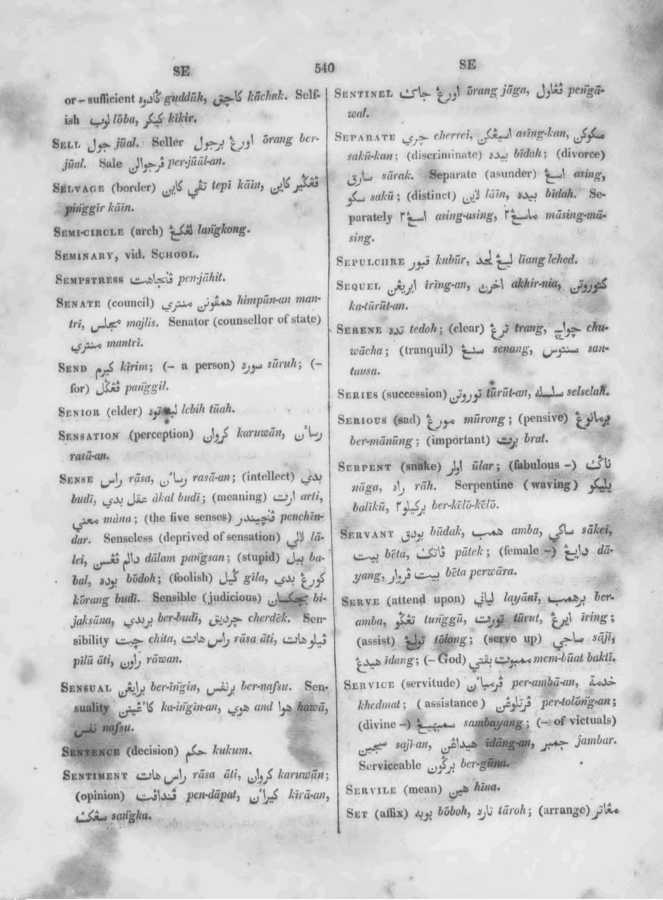 SE 540 SE
or-sufficient گادوه gŭddŭh, كاچق kāchak. Self-
ish لوب lōba, كيكر kikir.
SELL جول jūal. Seller اورڠ برجول ōrang ber-
jūal. Sale ڤرجوالن per-jūāl-an.
SELVAGE (border) تڤي كاين tepī kāin, ڤڠگير كاين
piñggīr kāin.
SEMI-CIRCLE (arch) لڠكڠ lañgkong.
SEMINARY, vid. SCHOOL.
SEMPSTRESS ڤنجاهت pen-jāhit.
SENATE (council) همڤونن منتري himpūn-an man-
tri, مجلس majlis. Senator (counsellor of state)
منتري mantrī.
SEND كيرم kīrim; (- a person) سوره sūruh; (-
for) ڤڠگل pañggil.
SENIOR (elder) لبه توه lebih tūah.
SENSATION (perception) كروان karuwān, رساٴن
rasā-an.
SENSE راس rāsa, رساٴن rasā-an; (intellect) بدي
budī, عقل بدي ākal budī; (meaning) ارت arti,
معني māna; (the five senses) ڤنچيندر penchīn-
dar. Senseless (deprived of sensation) لالي lā-
lei, دالم ڤڠسن dālam pañgsan; (stupid) ببل ba-
bal, بوده bōdoh; (foolish) گيل gīla, كورڠ بدي
kōrang budī. Sensible (judicious) بيجكسان bi-
jaksāna, بربدي ber-budī, چرديق cherdēk. Sen-
sibility چيت chita, راس هات rāsa āti, ڤيلو هات
pilū āti, راون rāwan.
SENSUAL برايڠن ber-iñgin, برنفس ber-nafsu. Sen-
suality كاٴڠينن ka-iñgin-an, هوي and هوا hawā,
نفس nafsu.
SENTENCE (decision) حكم kukum.
SENTIMENT راس هات rāsa āti, كروان karuwān;
(opinion) ڤنداڤت pen-dāpat, كيراٴن kīrā-an,
سڠك sañgka.
SENTINEL اورڠ جاگ ōrang jāga, ڤڠاول peñgā-
wal.
SEPARATE چري cherrei, اسيڠكن asing-kan, سكوكن
sakū-kan; (discriminate) بيده bīdah; (divorce)
سارق sārak. Separate (asunder) اسڠ asing,
سكو sakū; (distinct) لاين lāin, بيده bīdah. Se-
parately اسڠ٢ asing-asing, ماسڠ٢ māsing-mā-
sing.
SEPULCHRE قبور kubūr, ليڠ لحد līang lehed.
SEQUEL ايريڠن īring-an, اخرن akhir-nia, كتوروتن
ka-tūrūt-an.
SERENE تده tedoh; (clear) ترڠ trang, چواچ chu-
wācha; (tranquil) سنڠ senang, سنتوس san-
tausa.
SERIES (succession) توروتن tūrūt-an, سلسله selselah.
SERIOUS (sad) مورڠ mūrong; (pensive) برمانوڠ
ber-mānūng; (important) برت brat.
SERPENT (snake) اولر ūlar; (fabulous -) ناگ
nāga, راه rāh. Serpentine (waving) بليكو
balikū, بركيلو٢ ber-kēlō-kēlō.
SERVANT بودق būdak, همب amba, ساكي sākei,
بيت bēta, ڤاتك pātek; (female -) دايڠ dā-
yang, بيت ڤروار bēta perwāra.
SERVE (attend upon) لياني layānī, برهمب ber-
amba, تڠگو tuñggū, تورت tūrut, ايرڠ īring;
(assist) تولڠ tōlong; (serve up) ساجي sājī,
هيدڠ īdang; (- God) ممبوت بقتي mem-būat baktī.
SERVICE (servitude) ڤرمباٴن per-ambā-an, خدمة
khedmat; (assistance) ڤرتلوڠن per-tolōng-an;
(divine -) سمبهيڠ sambayang; (- of victuals)
سجين saji-an, هيداڠن īdāng-an, جمبر jambar.
Serviceable برگون ber-gūna.
SERVILE (mean) هين hīna.
SET (affix) بوبه bōboh, تاره tāroh; (arrange) مڠاتر